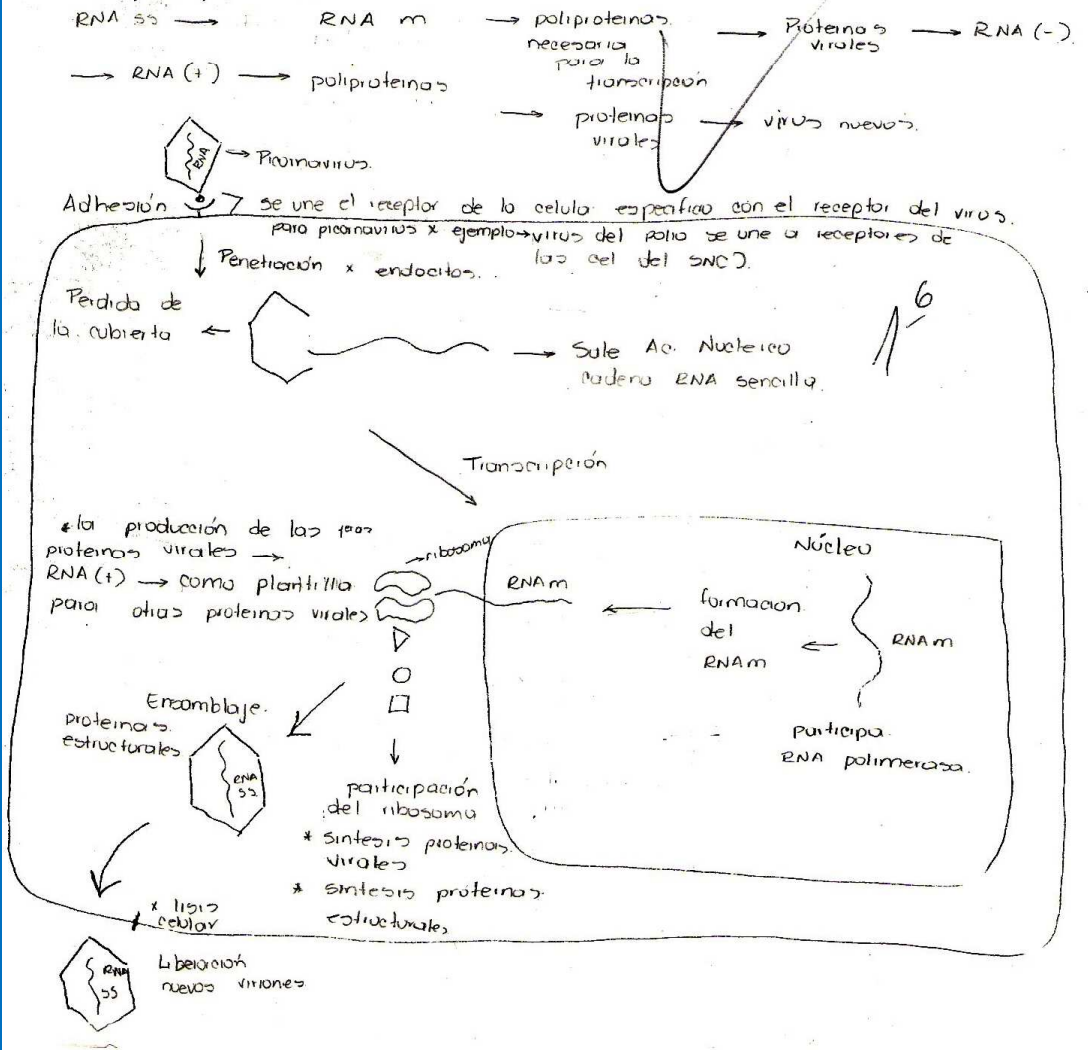 RNA ss → RNA m → poliproteinas → Proteinas → RNA (-)
necesaria virales
para la
transcripción
→ RNA (+) → poliproteinas
→ proteinas → virus nuevos.
virales
RNA → Picornavirus.
Adhesión se une el receptor de la celula especifico con el receptor del virus.
para picornavirus x ejemplo → virus del polio se une a receptores de
las cel del SNC).
Penetración x endocitos.
Perdida de
la cubierta ←
→ Sale Ac. Nucleico
cadena RNA sencilla.
1⁶
Transcripción
* la producción de las
proteinas virales →
RNA (+) → como plantilla
para otras proteinas virales
→ ribosoma
RNAm
Núcleo
formacion
del
RNAm
RNAm
participa
RNA polimerasa.
Ensamblaje.
proteinas
estructurales
RNA
ss
participación
del ribosoma
* sintesis proteinas
virales
* sintesis proteinas
estructurales
x lisis
celular
RNA
ss
Liberación
nuevos viriones